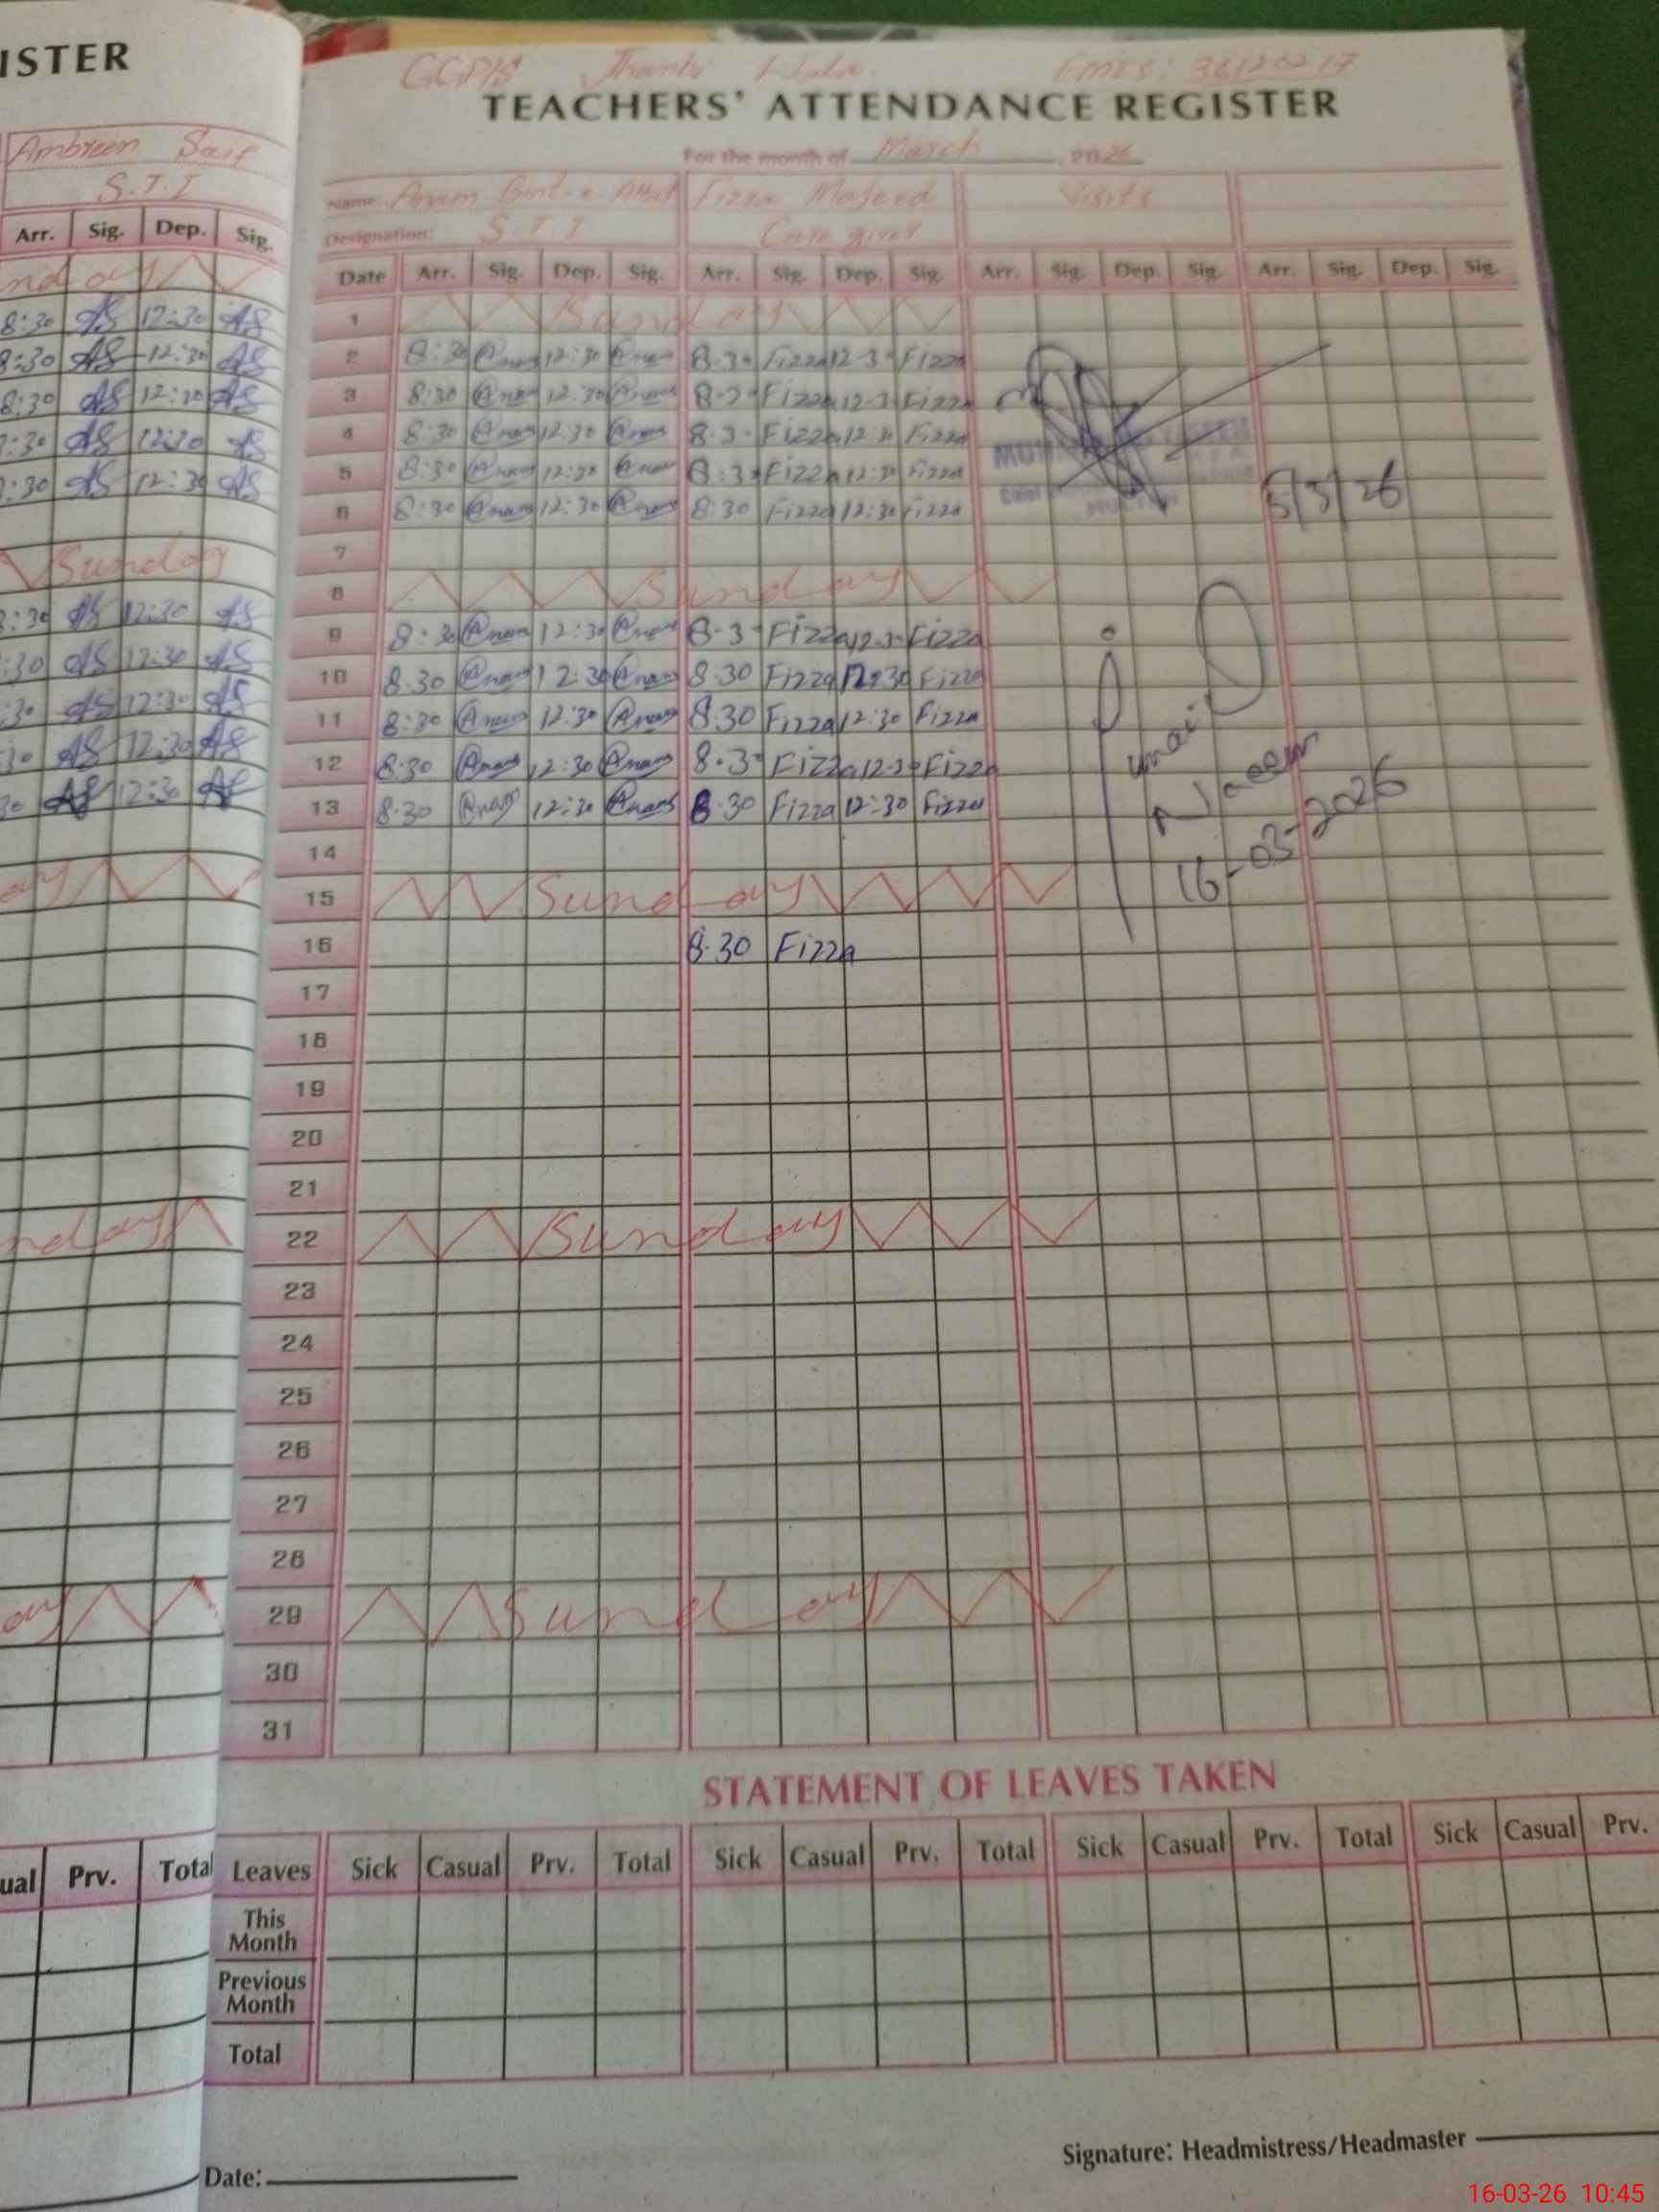 ISTER
Ambreen
S.T.I
Arr. Sig. Dep. Sig.
nday
8:30 AS 12:30 AS
8:30 AS 12:30 AS
8:30 AS 12:30 AS
:30 AS 12:30 AS
:30 AS 12:30 AS
Sunday
:30 AS 12:30 AS
:30 AS 12:30 AS
:30 AS 12:30 AS
30 AS 12:30 AS
30 AS 12:30 AS
ay
nday
ay
ual Prv. Total
GGP/S
EMIS:
TEACHERS' ATTENDANCE REGISTER
For the month of March, 2026
Name: Anam Bint-e- Fizza Majeed Visits
Designation: S.T.I Care giver
Date Arr. Sig. Dep. Sig. Arr. Sig. Dep. Sig. Arr. Sig. Dep. Sig. Arr. Sig. Dep. Sig.
1 Sunday
2 8:30 Anam 12:30 Anam 8-30 Fizza 12-30 Fizza
3 8:30 Anam 12:30 Anam 8-30 Fizza 12-30 Fizza
4 8:30 Anam 12:30 Anam 8-30 Fizza 12:30 Fizza
5 8:30 Anam 12:30 Anam 8:30 Fizza 12:30 Fizza
6 8:30 Anam 12:30 Anam 8:30 Fizza 12:30 Fizza
5/3/26
7
8 Sunday
9 8:30 Anam 12:30 Anam 8-30 Fizza 12-30 Fizza
10 8:30 Anam 12:30 Anam 8.30 Fizza 12:30 Fizza
11 8:30 Anam 12:30 Anam 8.30 Fizza 12:30 Fizza
12 8:30 Anam 12:30 Anam 8-30 Fizza 12-30 Fizza
13 8.30 Anam 12:30 Anam 8.30 Fizza 12:30 Fizza
Naeem
16-03-2026
14
15 Sunday
16 8.30 Fizza
17
18
19
20
21
22 Sunday
23
24
25
26
27
28
29 Sunday
30
31
STATEMENT OF LEAVES TAKEN
Leaves Sick Casual Prv. Total Sick Casual Prv. Total Sick Casual Prv. Total Sick Casual Prv.
This Month
Previous Month
Total
Date:
Signature: Headmistress/Headmaster
16-03-26 10:45